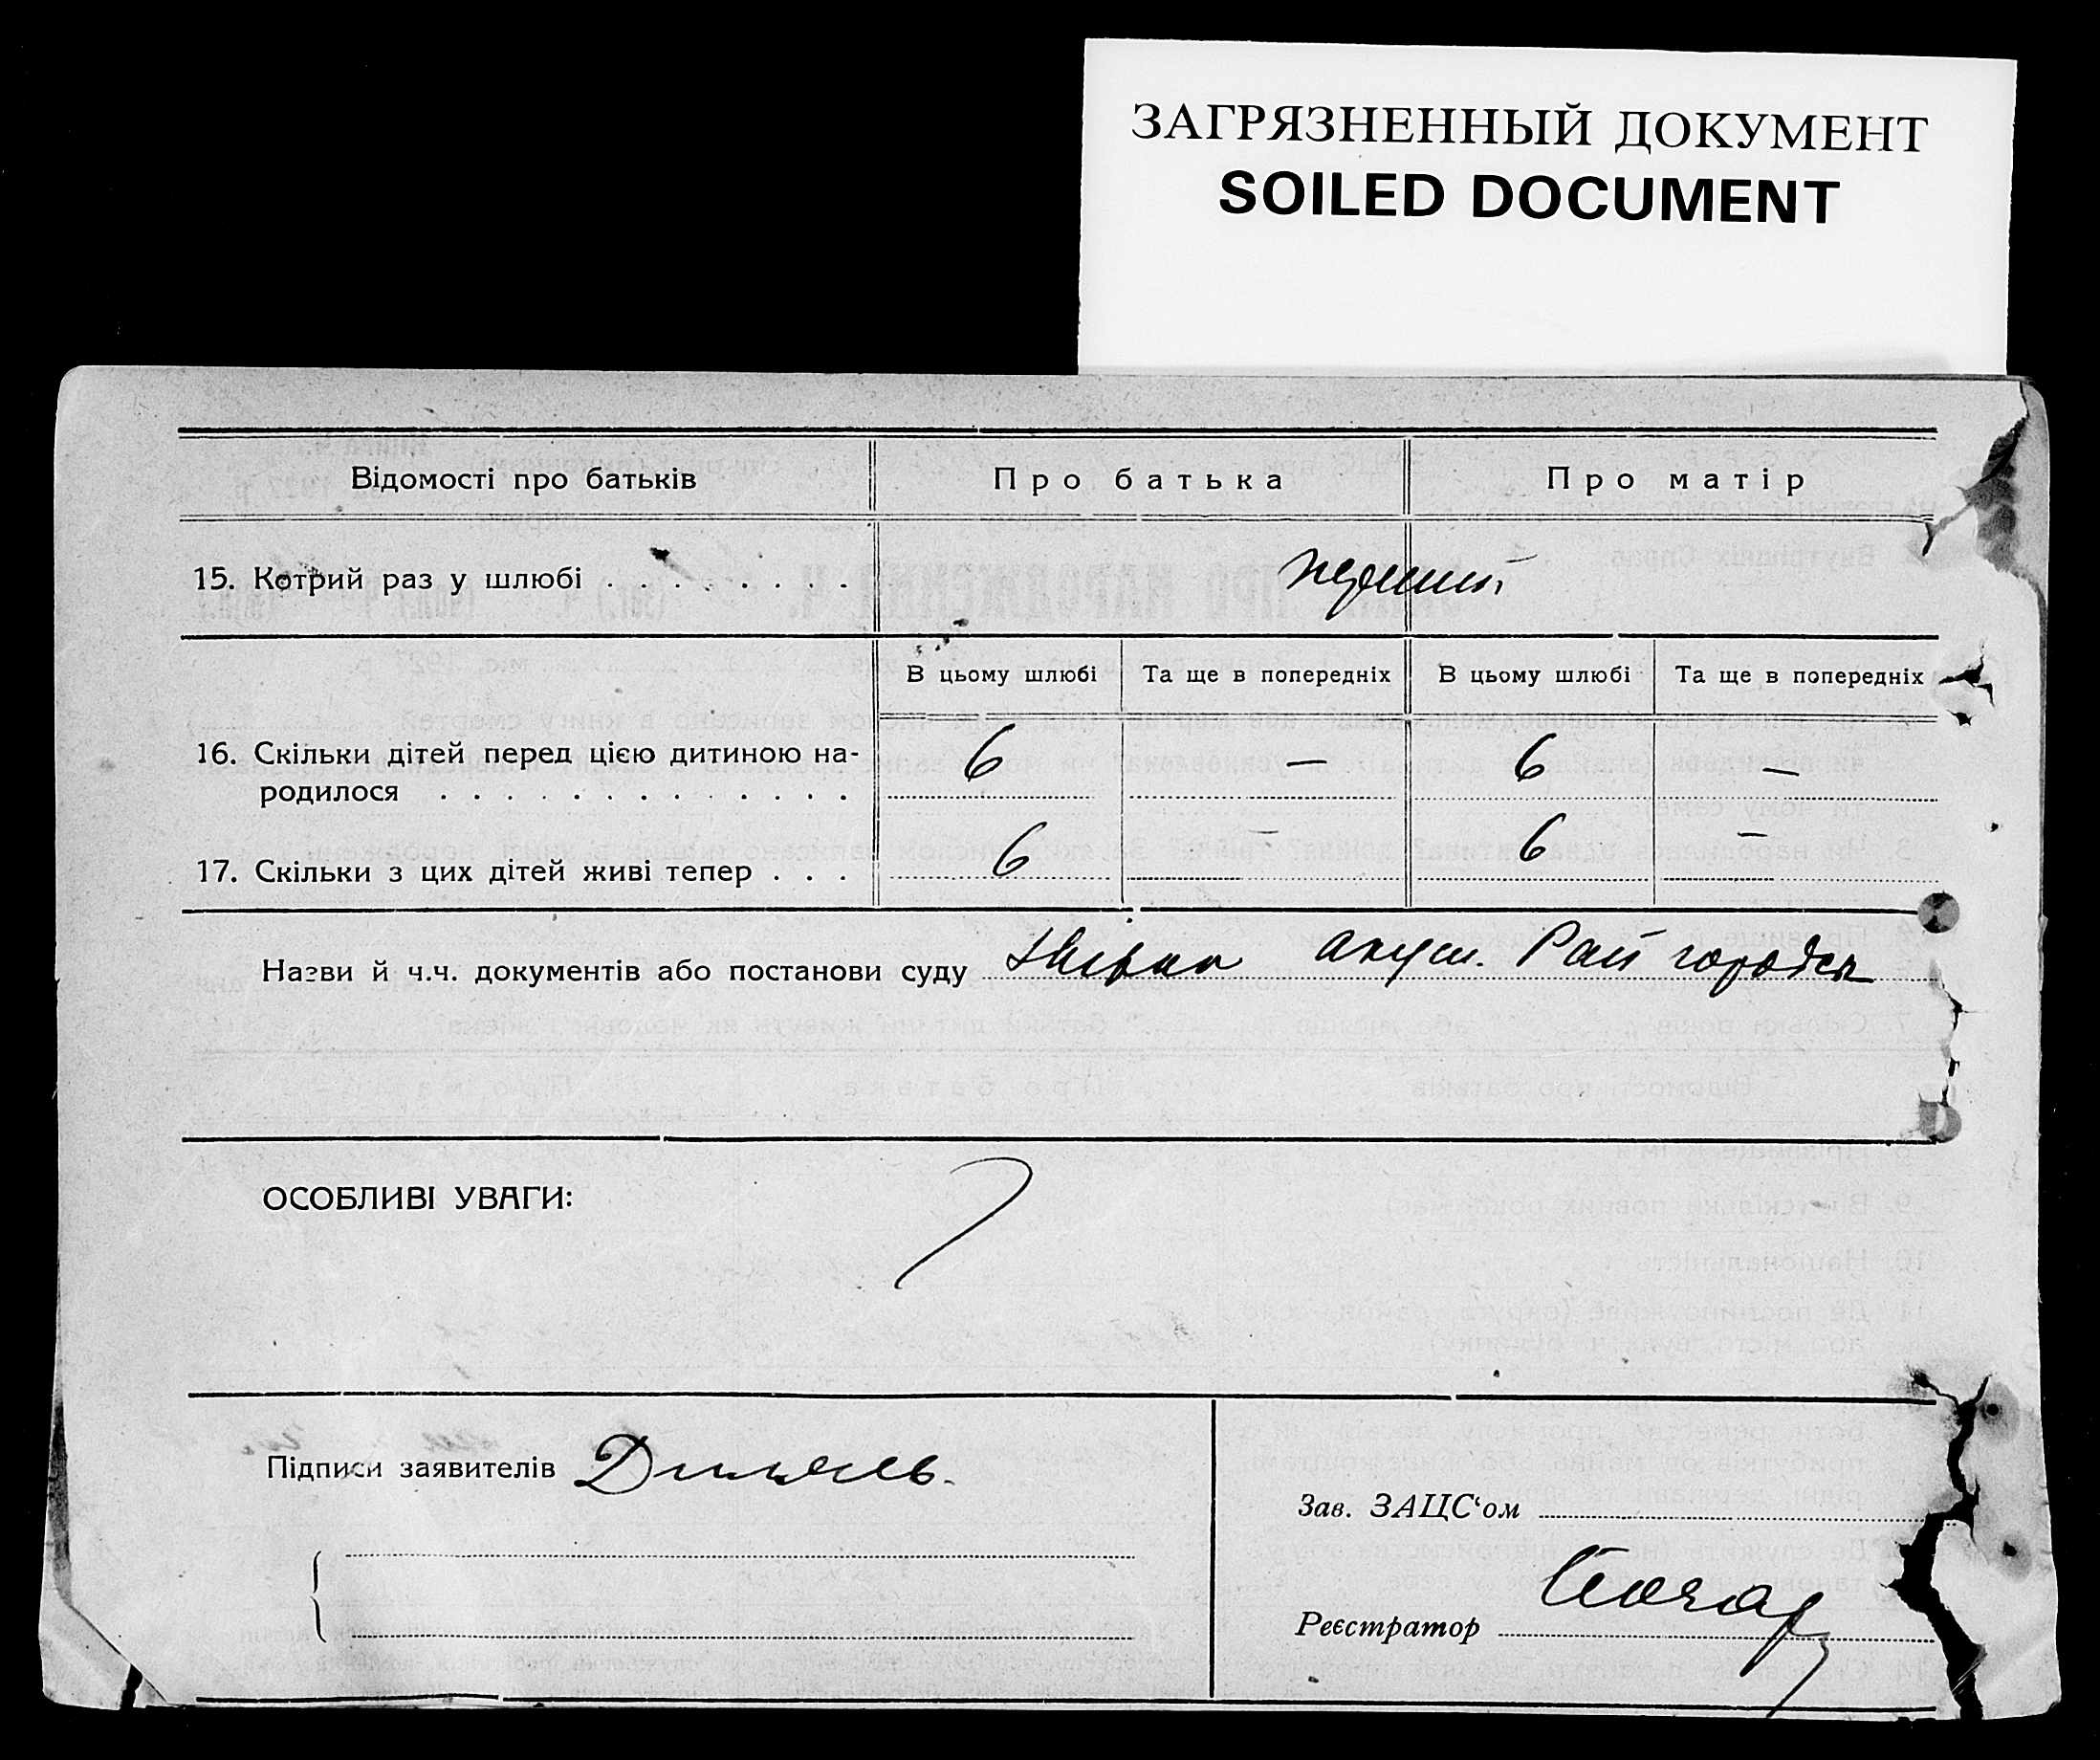 ЗАГРЯЗНЕННЫЙ ДОКУМЕНТ
SOILED DOCUMENT
Відомості про батьків Про батька Про матір
15. Котрий раз у шлюбі . . . . . . . .
В цьому шлюбі Та ще в попередніх В цьому шлюбі Та ще в попередніх
16. Скільки дітей перед цією дитиною на-
родилося . . . . . . . . . . . . . 6 — 6 —
17. Скільки з цих дітей живі тепер . . . 6 — 6 —
Назви й ч.ч. документів або постанови суду акуш. Рай
ОСОБЛИВІ УВАГИ:
Підписи заявителів
Зав. ЗАЦС‘ом
Реєстратор